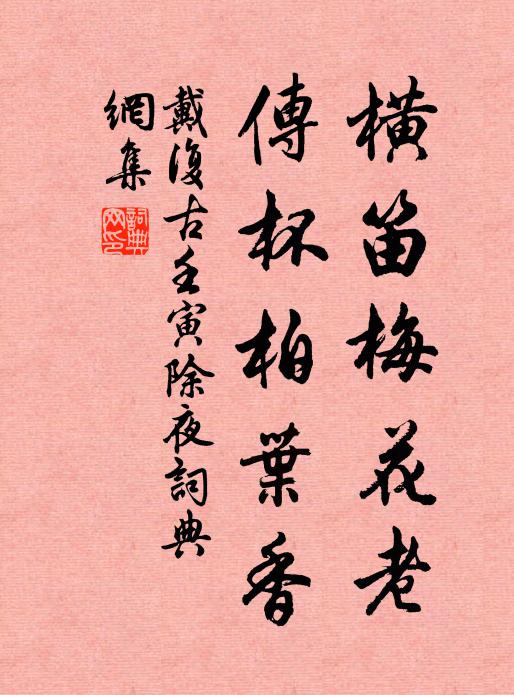 橫笛梅花老
傳杯柏葉香
戴復古壬寅除夜詞典
網集
詞典網印